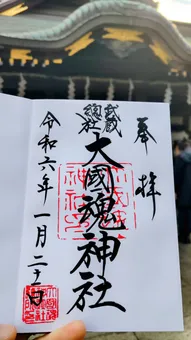 奉拝
武蔵
総社
大國魂神社
令和六年一月二十日